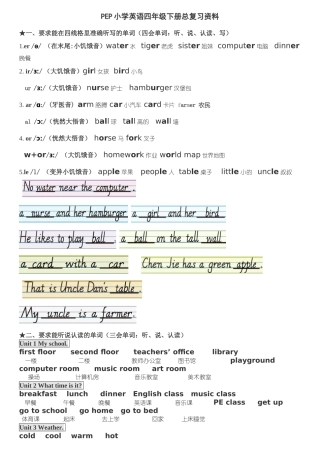 PEP 小学英语四年级下册总复习资料
★一、要求能在四线格里准确听写的单词（四会单词：听、说、认读、写）
1.er /ə/ （在末尾:小饥饿音）water 水 tiger 老虎 sister 姐妹 computer 电脑 dinner
晚餐
2. ir/ɜ:/（大饥饿音）girl 女孩 bird 小鸟
ur /ɜ:/（大饥饿音） nurse 护士 hamburger 汉堡包
3. ar /ɑ:/（牙医音）arm 胳膊 car 小汽车 card 卡片 farmer 农民
al /ɔ:/（恍然大悟音） ball 球 tall 高的 wall 墙
4. or /ɔ:/（恍然大悟音） horse 马 fork 叉子
w+or/ɜ:/ （大饥饿音） homework 作业 world map 世界地图
5.le /l/（变异小饥饿音）apple 苹果 people 人 table 桌子 little 小的 uncle 叔叔
No water near the computer.
a nurse and her hamburger a girl and her bird
He likes to play ball. a ball on the tall wall
a card with a car Chen Jie has a green apple.
That is Uncle Dan's table
My uncle is a farmer.
★二、要求能听说认读的单词（三会单词：听、说、认读）
Unit 1 My school.
first floor second floor teachers’ office library
一楼 二楼 教师办公室 图书馆 playground
computer room music room art room
操场 计算机房 音乐教室 美术教室
Unit 2 What time is it?
breakfast lunch dinner English class music class
早餐 午餐 晚餐 英语课 音乐课 PE class get up
go to school go home go to bed
体育课 起床 去上学 回家 上床睡觉
Unit 3 Weather.
cold cool warm hot